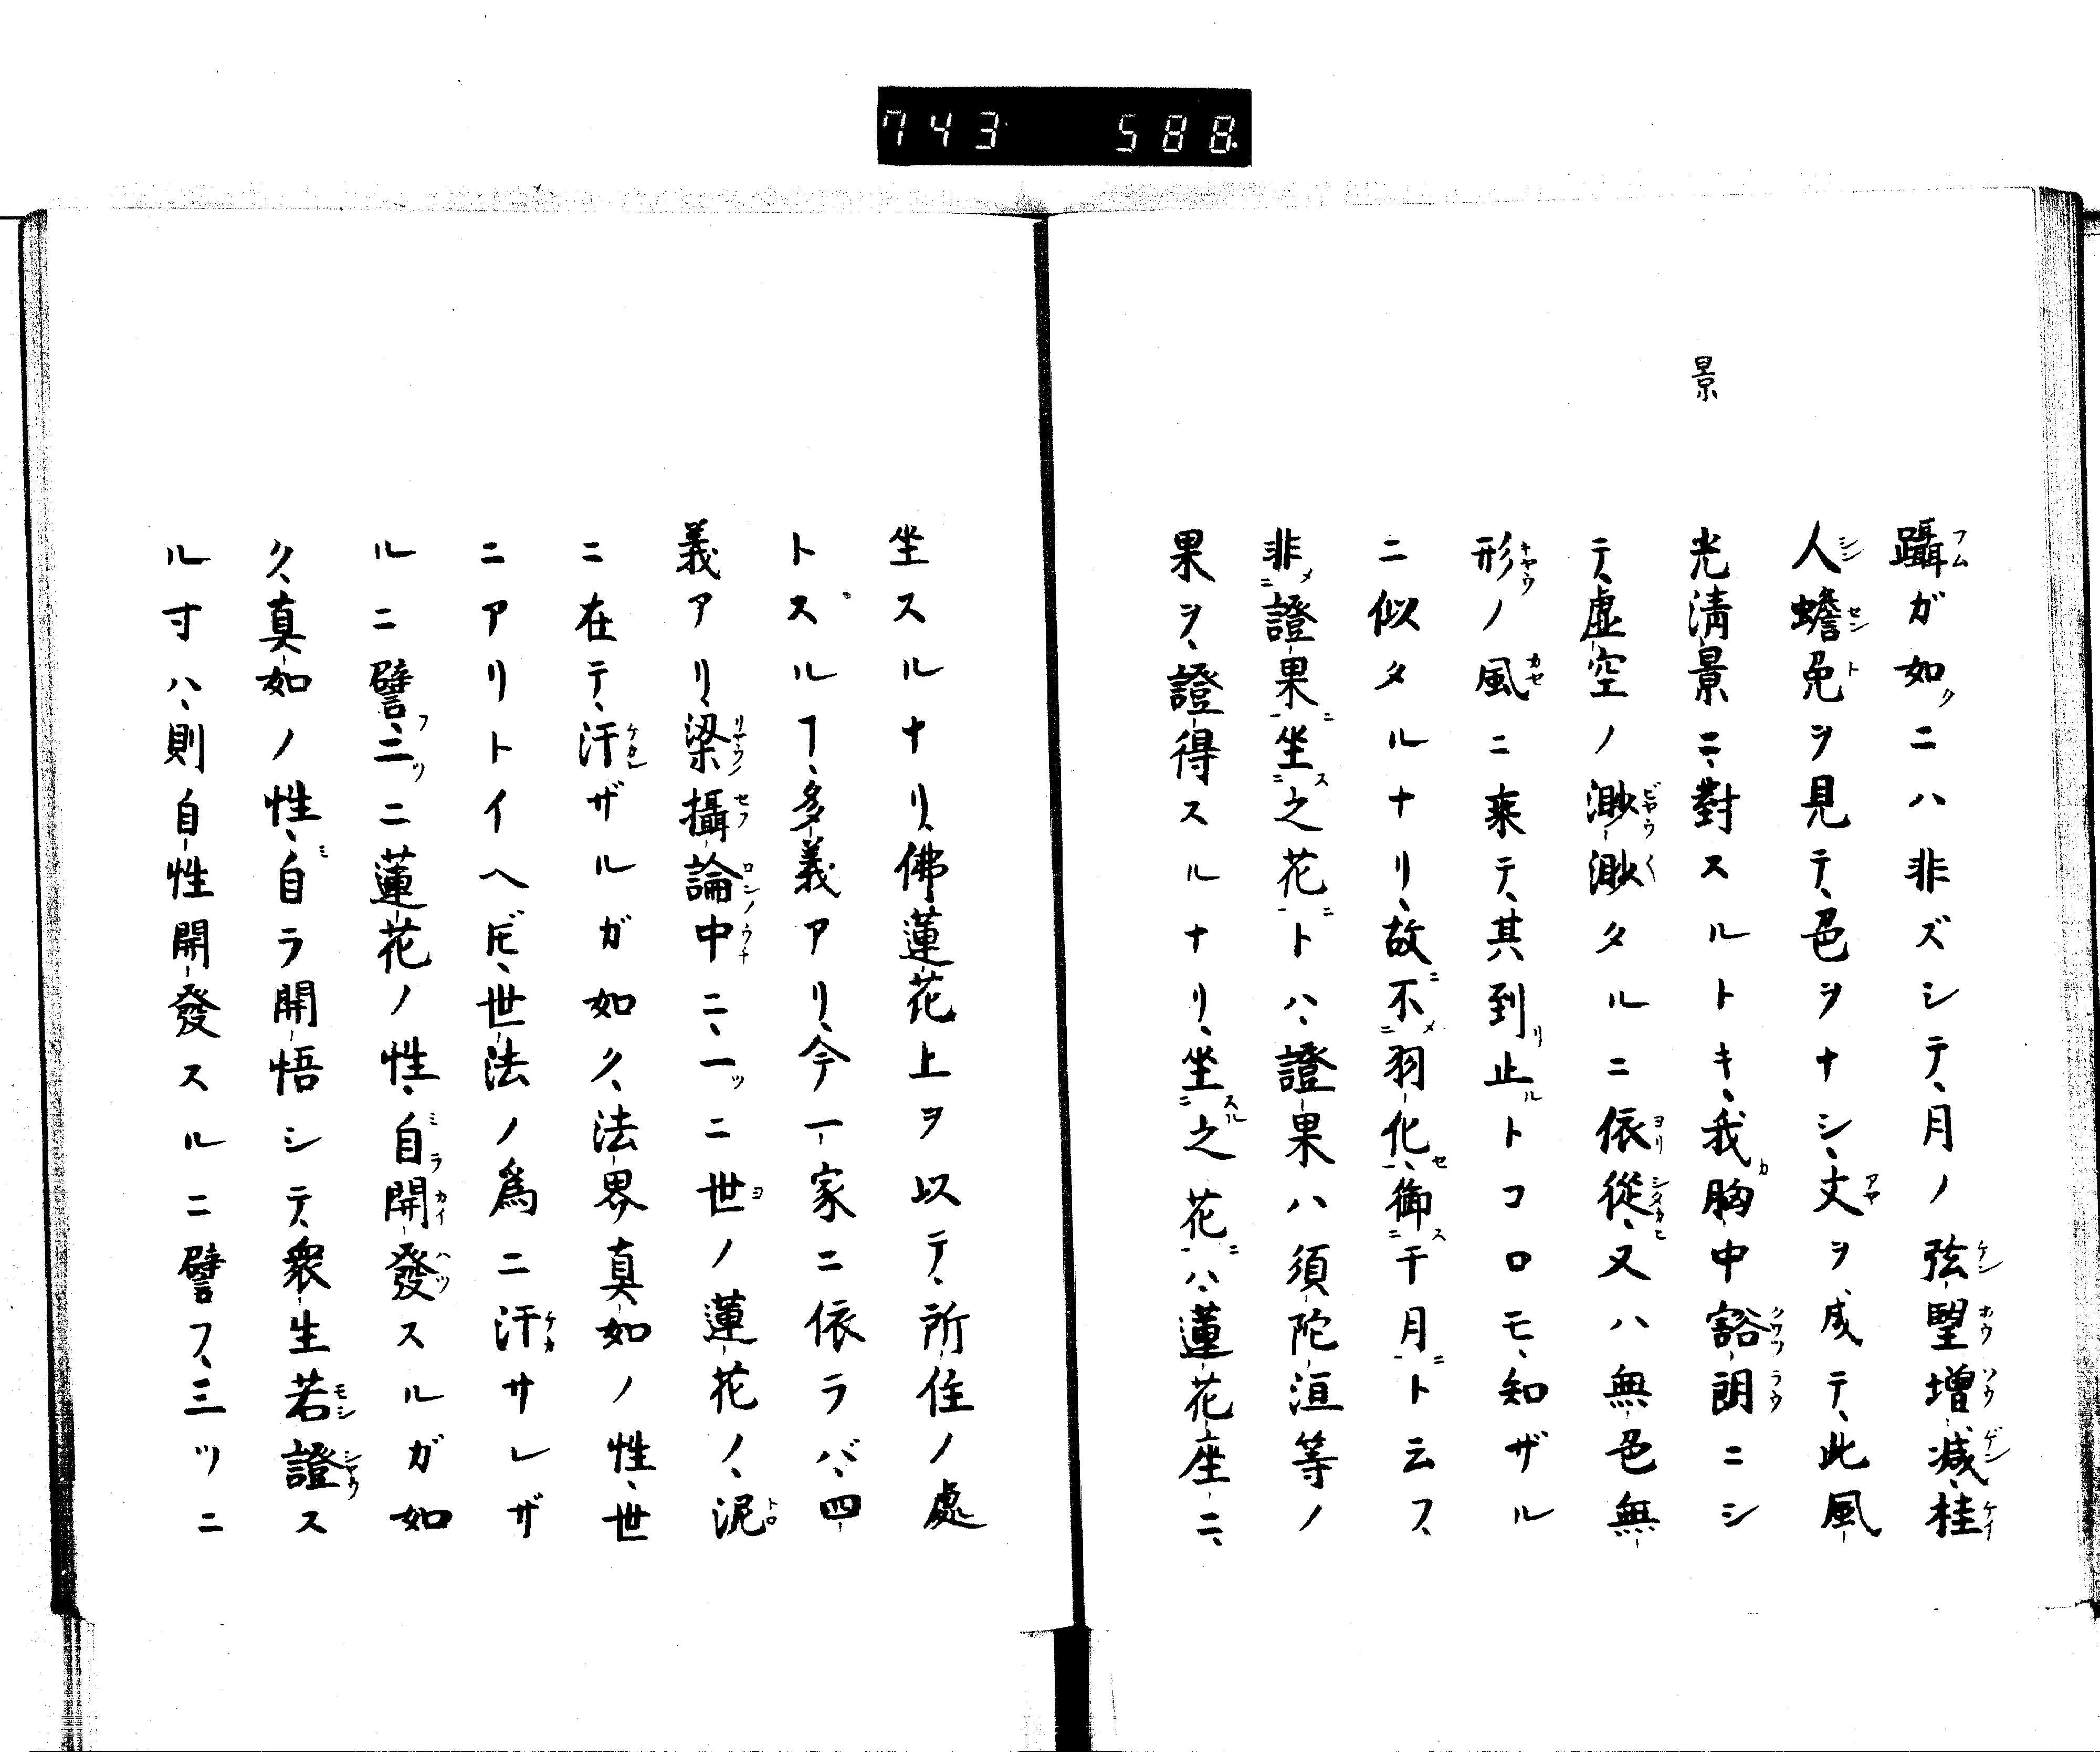 743 588
景
躡ガ如クニハ非ズシテ、月ノ弦望増減、桂
人蟾兎ヲ見テ、色ヲナシ、文ヲ成テ、此風
光淸景ニ、對スルトキ、我胸中豁朗ニシ
テ、虚空ノ渺渺タルニ依從、又ハ無色無
形ノ風ニ乘テ、其到リ止ルトコロモ、知ザル
ニ似タルナリ、故ニ不羽化セ、御ス于月ニト云フ、
非メ證果ニ坐ス之花ニトハ、證果ハ須陀洹等ノ
果ヲ、證得スルナリ、坐スル之花ニハ、蓮花座ニ、
坐スルナリ、佛蓮花上ヲ以テ、所住ノ處
トスルヿ、多義アリ、今一家ニ依ラバ、四
義アリ、梁攝論中ニ、一ツニ世ノ蓮花ノ、泥
ニ在テ、汗ザルガ如ク、法界真如ノ性、世
ニアリトイヘ𪜈、世法ノ爲ニ汗サレザ
ルニ譬フ、二ツニ蓮花ノ性、自ラ開發スルガ如
ク、真如ノ性、自ラ開悟シテ、衆生若證ス
ル寸ハ、則自性開發スルニ譬フ、三ツニ